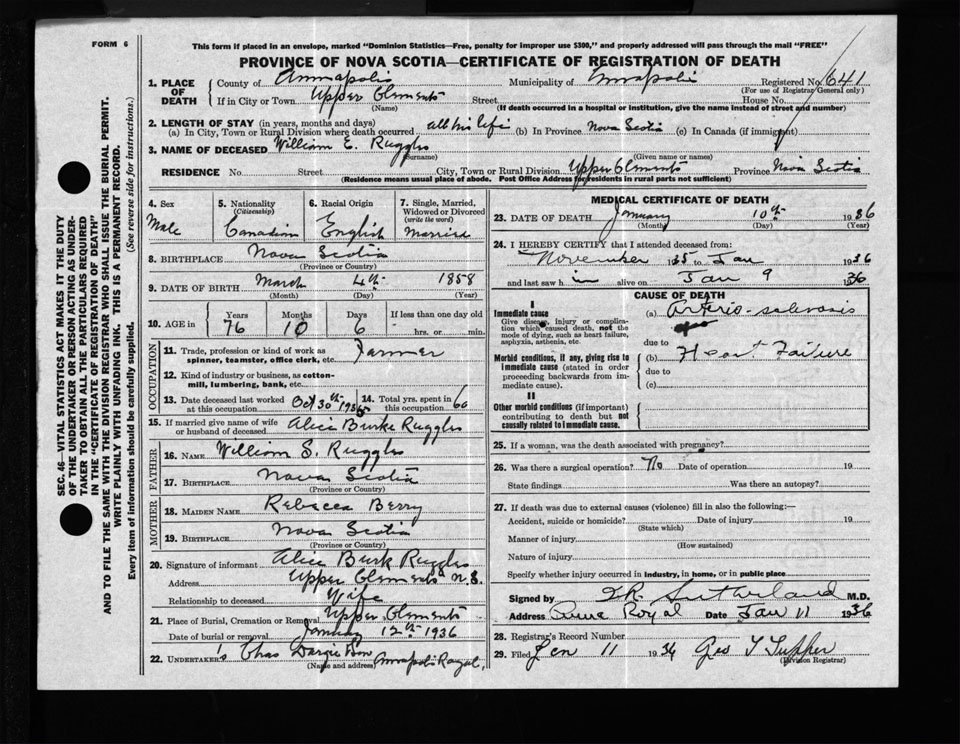 FORM 6
This form if placed in an envelope, marked "Dominion Statistics—Free, penalty for improper use $300," and properly addressed will pass through the mail "FREE"
PROVINCE OF NOVA SCOTIA—CERTIFICATE OF REGISTRATION OF DEATH
1. PLACE OF DEATH County of Annapolis Municipality of Annapolis Registered No. 641
(For use of Registrar General only)
If in City or Town Upper Clements Street House No.
(Name) (If death occurred in a hospital or institution, give the name instead of street and number)
2. LENGTH OF STAY (in years, months and days)
(a) In City, Town or Rural Division where death occurred all his life (b) In Province Nova Scotia (c) In Canada (if immigrant)
3. NAME OF DECEASED William E. Ruggles
(Surname) (Given name or names)
RESIDENCE No. Street City, Town or Rural Division Upper Clements Province Nova Scotia
(Residence means usual place of abode. Post Office Address for residents in rural parts not sufficient)
4. Sex Male
5. Nationality (Citizenship) Canadian
6. Racial Origin English
7. Single, Married, Widowed or Divorced (write the word) Married
8. BIRTHPLACE Nova Scotia
(Province or Country)
9. DATE OF BIRTH March 4th 1858
(Month) (Day) (Year)
10. AGE in Years 76 Months 10 Days 6 If less than one day old hrs. or min.
OCCUPATION
11. Trade, profession or kind of work as spinner, teamster, office clerk, etc. Farmer
12. Kind of industry or business, as cotton-mill, lumbering, bank, etc.
13. Date deceased last worked at this occupation Oct 30th 1935
14. Total yrs. spent in this occupation 60
15. If married give name of wife or husband of deceased Alice Burke Ruggles
FATHER
16. NAME William S. Ruggles
17. BIRTHPLACE Nova Scotia
(Province or Country)
MOTHER
18. MAIDEN NAME Rebecca Berry
19. BIRTHPLACE Nova Scotia
(Province or Country)
20. Signature of informant Alice Burk Ruggles
Address Upper Clements N.S.
Relationship to deceased Wife
21. Place of Burial, Cremation or Removal Upper Clements
Date of burial or removal January 12th 1936
22. UNDERTAKER's Chas Dargie Annapolis Royal,
(Name and address)
MEDICAL CERTIFICATE OF DEATH
23. DATE OF DEATH January 10th 1936
(Month) (Day) (Year)
24. I HEREBY CERTIFY that I attended deceased from:
November 1935 to Jan 1936
and last saw him alive on Jan 9 1936
CAUSE OF DEATH
I
Immediate cause
Give disease, injury or complication which caused death, not the mode of dying, such as heart failure, asphyxia, asthenia, etc.
(a) Arterio-sclerosis
due to
Morbid conditions, if any, giving rise to immediate cause (stated in order proceeding backwards from immediate cause).
(b) Heart Failure
due to
(c)
II
Other morbid conditions (if important) contributing to death but not causally related to immediate cause.
25. If a woman, was the death associated with pregnancy?
26. Was there a surgical operation? No Date of operation 19
State findings Was there an autopsy?
27. If death was due to external causes (violence) fill in also the following:—
Accident, suicide or homicide? Date of injury 19
(State which)
Manner of injury
(How sustained)
Nature of injury
Specify whether injury occurred in industry, in home, or in public place
Signed by Sutherland M.D.
Address Royal Date Jan 11 1936
28. Registrar's Record Number
29. Filed Jan 11 1936 Geo T Tupper
(Division Registrar)
SEC. 46—VITAL STATISTICS ACT MAKES IT THE DUTY
OF THE UNDERTAKER OR PERSON ACTING AS UNDER-
TAKER TO OBTAIN ALL THE PARTICULARS REQUIRED
IN THE "CERTIFICATE OF REGISTRATION OF DEATH"
AND TO FILE THE SAME WITH THE DIVISION REGISTRAR WHO SHALL ISSUE THE BURIAL PERMIT.
WRITE PLAINLY WITH UNFADING INK. THIS IS A PERMANENT RECORD.
Every item of information should be carefully supplied. (See reverse side for instructions.)